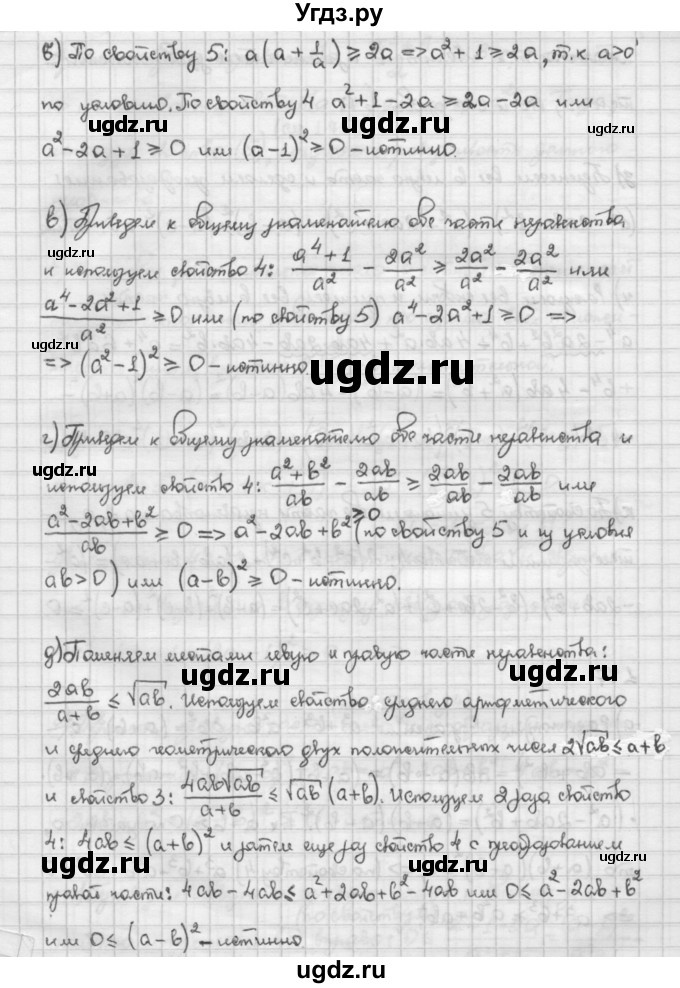 Угдз.ру
б) По свойству 5: a(a + 1/a) ≥ 2a => a² + 1 ≥ 2a, т.к. a>0
по условию. По свойству 4 a² + 1 - 2a ≥ 2a - 2a или
ugdz.ru ugdz.ru
a² - 2a + 1 ≥ 0 или (a-1)² ≥ 0 - истинно.
в) Приведем к общему знаменателю обе части неравенства
и используем свойство 4: (a⁴+1)/a² - 2a²/a² ≥ 2a²/a² - 2a²/a² или
(a⁴-2a²+1)/a² ≥ 0 или (по свойству 5) a⁴ - 2a² + 1 ≥ 0 =>
ugdz.ru ugdz.ru
=> (a² - 1)² ≥ 0 - истинно
ugdz.ru
г) Приведем к общему знаменателю обе части неравенства и
ugdz.ru ugdz.ru
используем свойство 4: (a²+b²)/ab - 2ab/ab ≥ 2ab/ab - 2ab/ab или
(a²-2ab+b²)/ab ≥ 0 => a² - 2ab + b² ≥ 0 (по свойству 5 и из условия
ugdz.ru ugdz.ru
ab > 0) или (a-b)² ≥ 0 - истинно.
ugdz.ru
д) Поменяем местами левую и правую части неравенства:
ugdz.ru ugdz.ru
2ab/(a+b) ≤ √ab. Используем свойство среднего арифметического
и среднего геометрического двух положительных чисел 2√ab ≤ a+b
ugdz.ru
и свойство 3: 4ab√ab/(a+b) ≤ √ab (a+b). Используем 2 раза свойство
4: 4ab ≤ (a+b)² и затем еще раз свойство 4 с преобразованием
ugdz.ru ugdz.ru
правой части: 4ab - 4ab ≤ a² + 2ab + b² - 4ab или 0 ≤ a² - 2ab + b²
ugdz.ru
или 0 ≤ (a-b)² - истинно
ugdz.ru